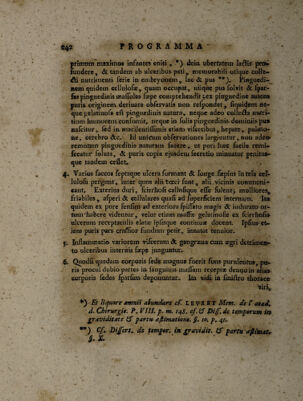 242 PROGRAMMA
primum maximos infantes eniti, *) dein ubertatem lactis pro-
fundere, & tandem ab ulceribus peti, memorabili utique colle-
cti nutrientis serie in embryonem, lac & pus **). Pinguedi-
nem quidem cellulosæ, quam occupat, uſique pus ſolvit & ſpar-
ſas pinguedinis maſſulas ſæpe comprehendit; ex pinguedine autem
puris originem derivare obſervata non reſpondet, ſiquidem ne-
que palmonis eſt pinguedinis natura, neque adeo collecta nutri-
tium humorem conſumit, neque in ſolis pinguedinis dominiis pus
naſcitur, ſed in macilentiſſimis etiam viſceribus, hepate, pulmo-
ne, cerebro &c. Id unicum obſervationes largiuntur, non adeo
remotam pinguedinis naturam ſuiſſe, ut pori hæc facile remi-
ſceatur ſoluta, & puris copia ejusdem ſecretio minuatur penitus-
que tandem ceſſet.
4. Varios ſaccos ſeptaque ulcera formant & longe ſæpius in tela cel-
luloſi peregant, inter quos alii tecti ſunt, alii vicinis communi-
cant. Exterius duri, ſcirrhoſi calloſique eſſe ſolent; molliores,
friabiles, aſperi & celluIares quaſi ad ſuperficiem internam. Ita
quidem ex pure ſenſim ad exteriora ſpiſſato magis & indurato or-
tum habere videntur, ecive etiam maſſæ geſinoſæ ex ſcirrhoſis
ulcerum receptaculis elatæ ipſæque continuæ docent. Ipſum et-
iam puris pars craſſior fundum petit, innatat tenuior.
5. Inflammatio variorum viſcerum & gangræna cum ægri detrimen-
to ulceribus internis ſæpe junguntur.
6. Quodſi quædam corporis ſede magnus fuerit fons purulentus, pu-
ris procul dubio partes in ſanguinis maſſam receptæ denuo in alias
corporis ſedes ſparſim deponuntur. Ita vidi in ſiniſtro thorace
viri,
*) Et liquore amnii abundare cf. LEVRET Mem. de l'acad.
d. Chirurgie. P. VIII. p. m. 148. cf. & Diſſ. de temporum in
graviditate & partu æſtimatione. §. 10. p. 41.
**) Cf. Diſſert. de tempor. in gravidit. & partu æſtimat.
§. X.